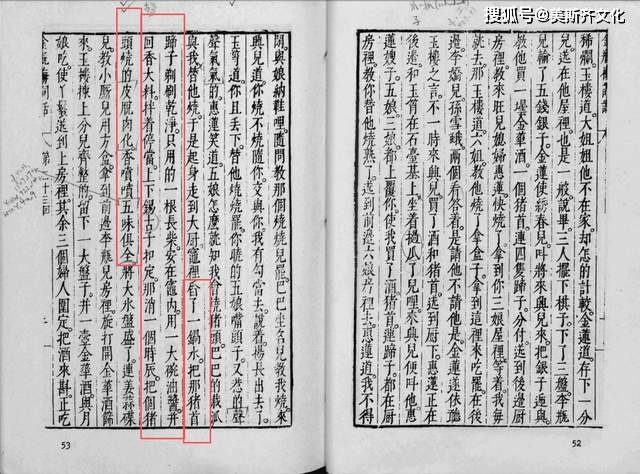 搜狐号@美斯齐文化
稀爛。玉樓道。大姐姐他不在家。却怎的計較。金蓮道。存下一分
兒送在他屋裡。也是一般。說畢。三人擺下棋子。下了三盤。李瓶
兒輸了五錢銀子。金蓮使綉春兒。叫將來興兒來。把銀子遞與
他。教他買一壜金華酒。一個猪首。連四隻蹄子。分付送到後邊厨
房裡。教來旺兒媳婦惠蓮快燒了。拿到你三娘屋裡等着。我每
就去。那玉樓道。六姐教他燒了。拿盒子拿到這裡來吃罷。在後
邊李嬌兒孫雪娥兩個看答着。是請他不請他。是金蓮遂依
玉樓之言。不一時來興兒買了酒和猪首。送到厨下。惠蓮正在
後邊和玉筲在石臺基上坐着。撾瓜子兒哩。來興兒便叫他惠
蓮嫂子。五娘三娘都上覆你。使我買了酒猪首連蹄子。都在厨
房裡。教你替他燒熟了。送到前邊六娘房裡去。惠蓮道。我不得
52
閒。與娘納鞋哩。隨問教那個燒燒兒罷。巴巴坐名兒教我燒。來
興兒道。你燒不燒隨你。交與你。我有勾當去。說着揚長出去了。
玉筲道。你且丟下。替他燒燒罷。你曉的五娘嘴頭子。又惹的聲
聲氣氣的。惠蓮笑道。五娘怎麼就知我會燒猪頭。巴巴的栽派
與我替他燒。于是起身走到大厨竈裡。舀了一鍋水。把那猪首
蹄子剃刷乾淨。只用的一根長柴。安在竈內。用一大碗油醬。并
回香大料。拌着停當。上下錫古子扣定。那消一個時辰。把個猪
頭燒的皮脫肉化。香噴噴五味俱全。將大氷盤盛了。連姜蒜碟
兒。教小厮兒用方盒拿到前邊李瓶兒房裡。旋打開金華酒篩
來。玉樓揀上分兒齊整的。留下一大盤子。并一壺金華酒。與月
娘吃。使丫鬟送到上房裡。其余三個婦人圍定。把酒來斟。正吃
金瓶梅詞話 第二十三回
53